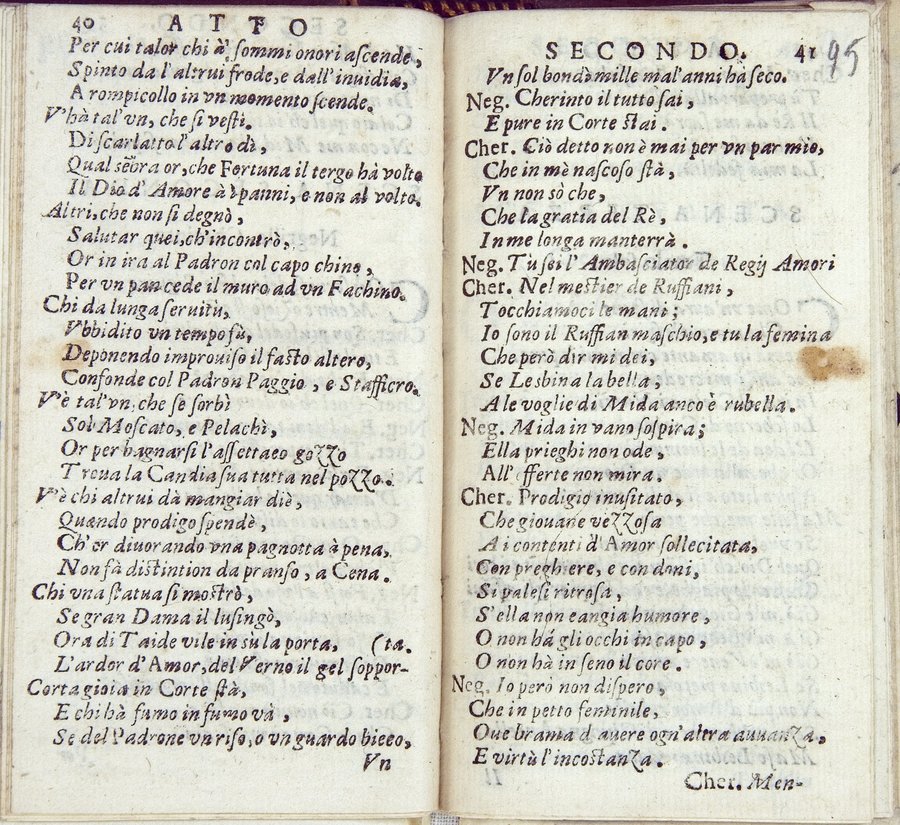 40 ATTO
Per cui talor chi à' sommi onori ascende,
Spinto da l'altrui frode, e dall'inuidia,
A rompicollo in vn momento scende.
V'hà tal'vn, che si vestì.
Di scarlatto l'altro dì,
Qual sẽbra or, che Fortuna il tergo hà volto
Il Dio d'Amore à i panni, e non al volto.
Altri, che non si degnò,
Salutar quei, ch'incontrò,
Or in ira al Padron col capo chino,
Per vn pan cede il muro ad vn Fachino.
Chi da lunga seruitù,
Vbbidito vn tempo fù,
Deponendo improuiso il fasto altero,
Confonde col Padron Paggio, e Staffiero.
V'è tal'vn, che se sorbì
Sol Moscato, e Pelachì,
Or per bagnarsi l'assettaeo gozzo
Troua la Candia sua tutta nel pozzo.
V'è chi altrui dà mangiar diè,
Quando prodigo spendè,
Ch'or diuorando vna pagnotta à pena,
Non fà distintion da pranso, a Cena.
Chi vna statua si mostrò,
Se gran Dama il lusingò,
Ora di Taide vile in su la porta, (ta.
L'ardor d'Amor, del Verno il gel soppor-
Corta gioia in Corte stà,
E chi hà fumo in fumo và,
Se del Padrone vn riso, o vn guardo bieco,
Vn
SECONDO. 41
95
Vn sol bon dì mille mal'anni hà seco.
Neg. Cherinto il tutto sai,
E pure in Corte stai.
Cher. Ciò detto non è mai per vn par mio,
Che in mè nascoso stà,
Vn non sò che,
Che la gratia del Rè,
In me longa manterrà.
Neg. Tù sei l'Ambasciator de Regij Amori
Cher. Nel mestier de Ruffiani,
Tocchiamoci le mani;
Io sono il Ruffian maschio, e tu la femina
Che però dir mi dei,
Se Lesbina la bella,
A le voglie di Mida anco è rubella.
Neg. Mida in vano sospira;
Ella prieghi non ode,
All'offerte non mira.
Cher. Prodigio inusitato,
Che giouane vezzosa
Ai contenti d'Amor sollecitata,
Con preghiere, e con doni,
Si palesi ritrosa,
S'ella non eangia humore,
O non há gli occhi in capo,
O non hà in seno il core.
Neg. Io però non dispero,
Che in petto feminile,
Oue brama d'auere ogn'altra auuanza,
E virtù l'incostanza.
Cher. Men-